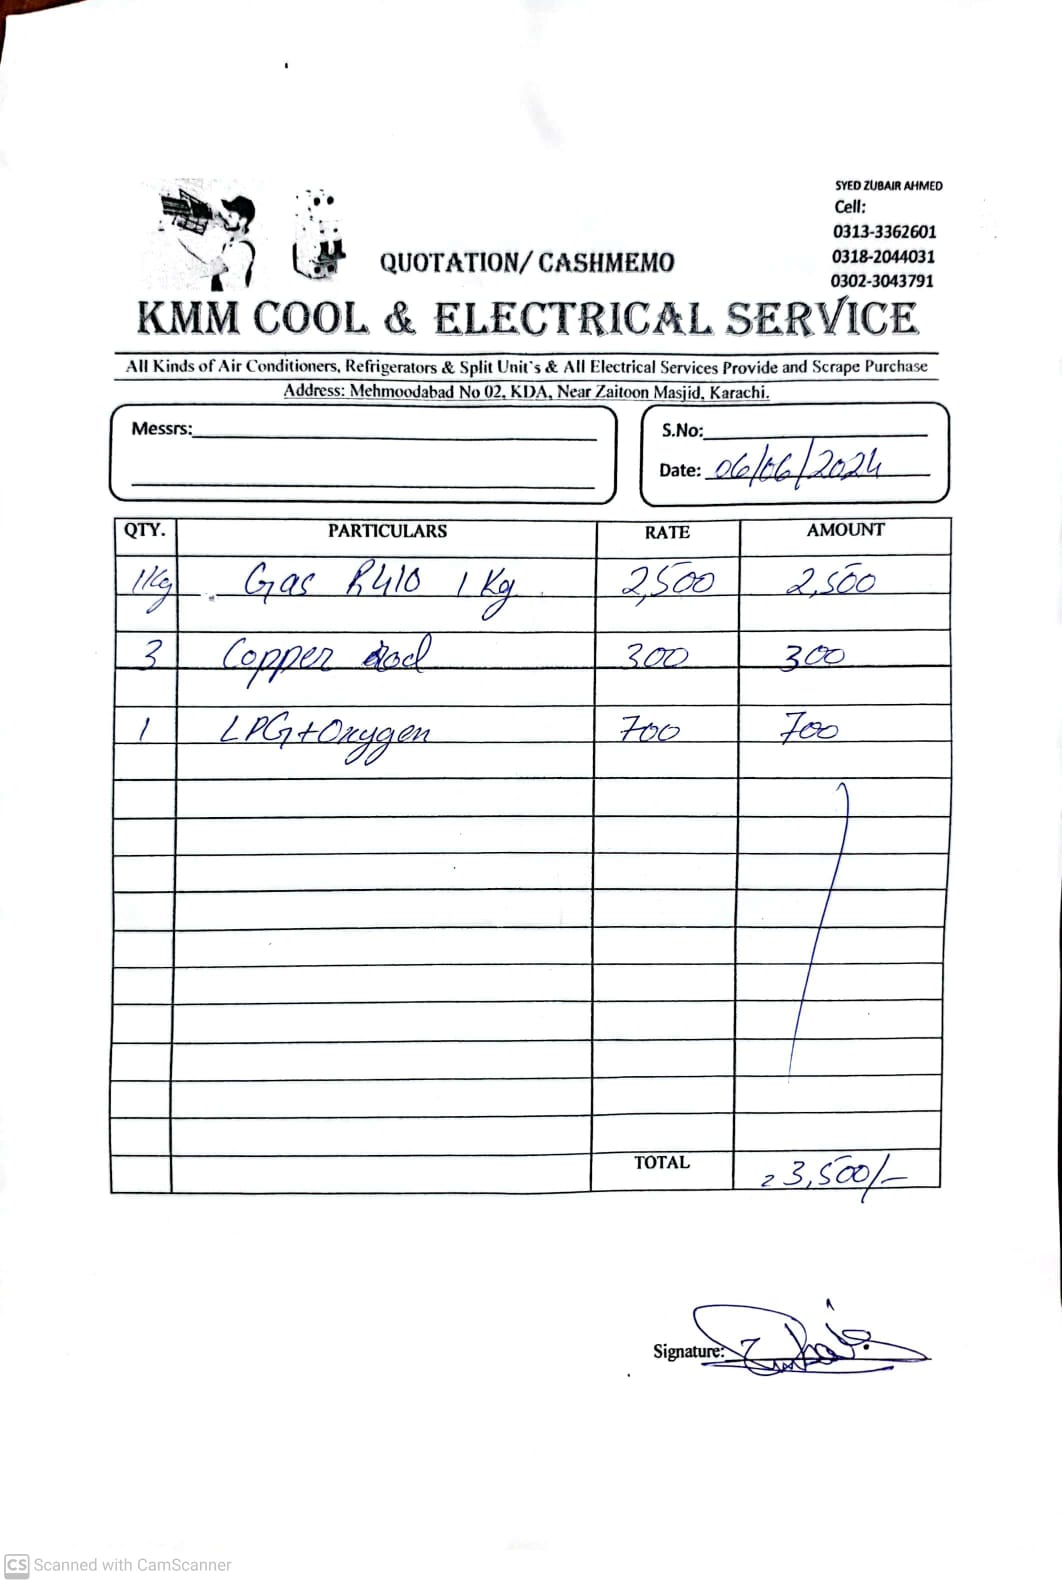 SYED ZUBAIR AHMED
Cell:
0313-3362601
0318-2044031
0302-3043791
QUOTATION/ CASHMEMO
KMM COOL & ELECTRICAL SERVICE
All Kinds of Air Conditioners, Refrigerators & Split Unit`s & All Electrical Services Provide and Scrape Purchase
Address: Mehmoodabad No 02, KDA, Near Zaitoon Masjid, Karachi.
Messrs:
S.No:
Date: 06/06/2024
QTY. PARTICULARS RATE AMOUNT
1Kg Gas R410 1 Kg 2,500 2,500
3 Copper Rod 300 300
1 LPG+Oxygen 700 700
TOTAL 3,500/-
Signature:
CS Scanned with CamScanner